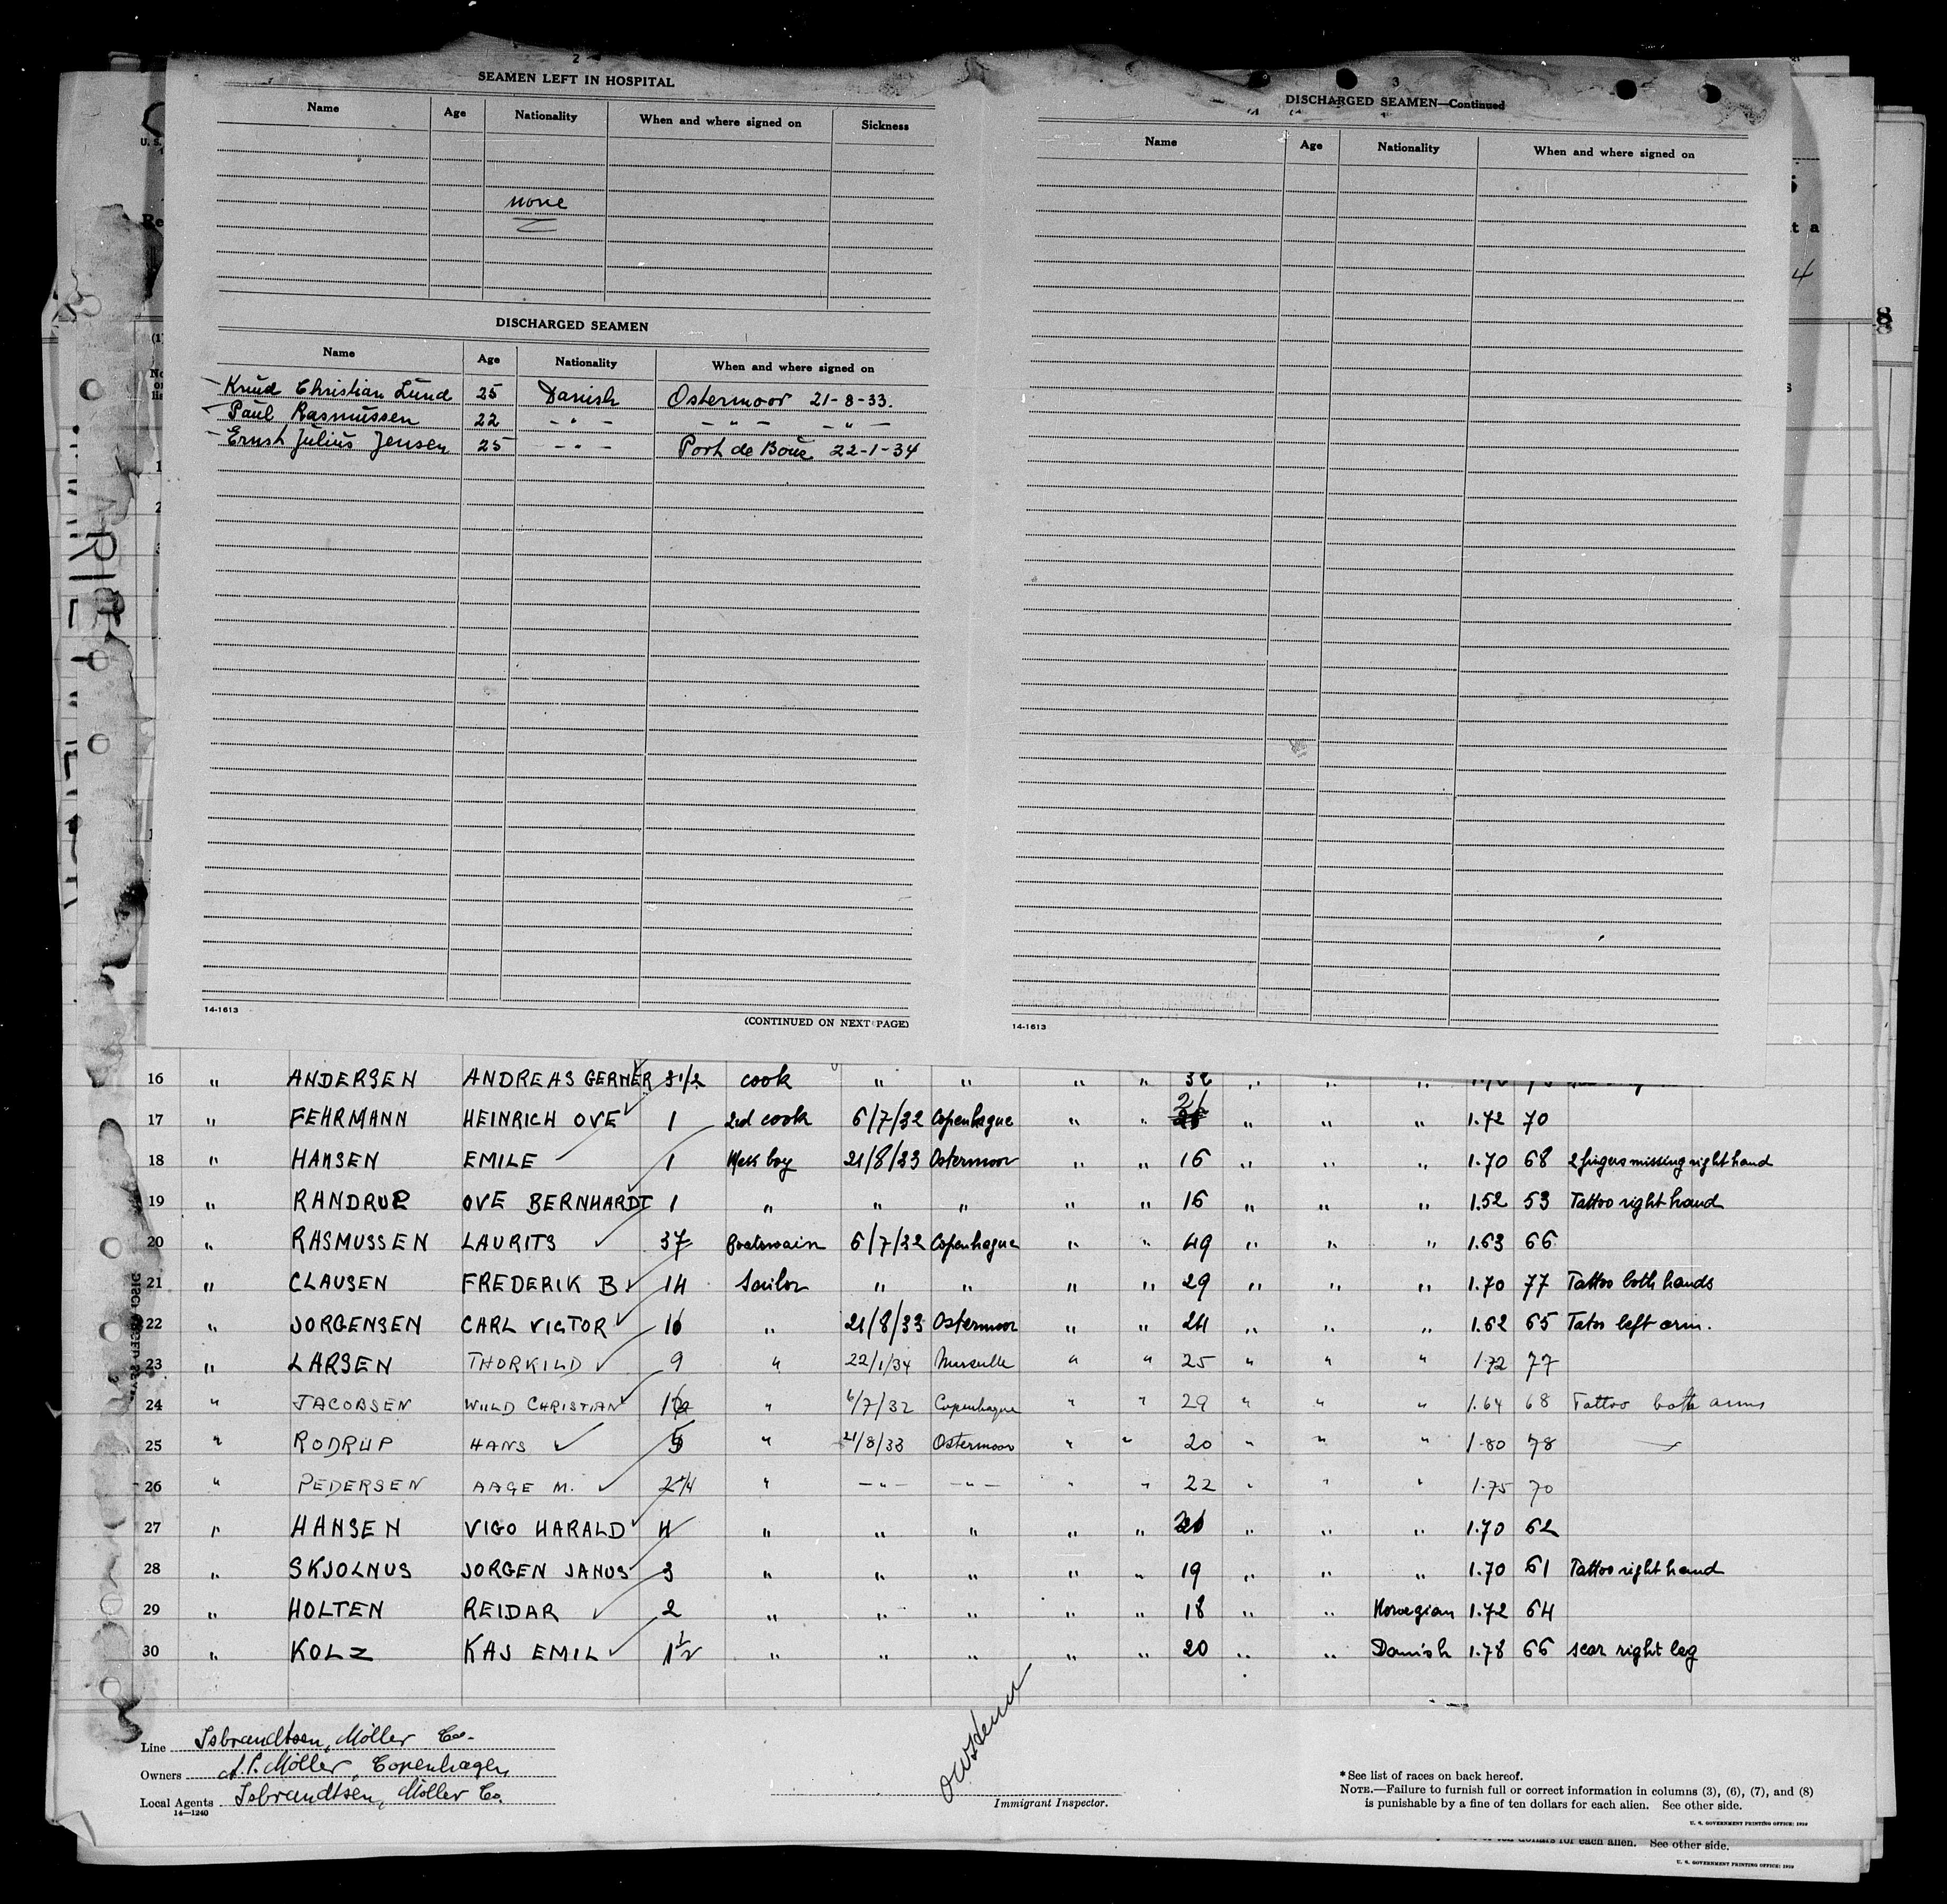 2
SEAMEN LEFT IN HOSPITAL
Name Age Nationality When and where signed on Sickness
none
DISCHARGED SEAMEN
Name Age Nationality When and where signed on
Knud Christian Lund 25 Danish Ostermoor 21-8-33.
Paul Rasmussen 22 - " - - " - - " -
Ernst Julius Jensen 25 - " - Port de Bouc 22-1-34
14-1613
(CONTINUED ON NEXT PAGE)
3
DISCHARGED SEAMEN—Continued
Name Age Nationality When and where signed on
14-1613
16 " ANDERSEN ANDREAS GERNER 3 1/2 cook " " " " 32 " " "
17 " FEHRMANN HEINRICH OVE 1 2nd cook 6/7/32 Copenhague " " 21 " " " 1.72 70
18 " HANSEN EMILE 1 Mess boy 21/8/33 Ostermoor " " 16 " " " 1.70 68 2 fingers missing right hand
19 " RANDRUP OVE BERNHARDT 1 " " " " " 16 " " " 1.52 53 Tattoo right hand
20 " RASMUSSEN LAURITS 37 Boatswain 6/7/32 Copenhague " " 49 " " " 1.63 66
21 " CLAUSEN FREDERIK B 14 Sailor " " " " 29 " " " 1.70 77 Tattoo both hands
22 " JORGENSEN CARL VICTOR 10 " 21/8/33 Ostermoor " " 24 " " " 1.62 65 Tatos left arm.
23 " LARSEN THORKILD 9 " 22/1/34 Marseille " " 25 " " " 1.72 77
24 " JACOBSEN WILLD CHRISTIAN " 6/7/32 Copenhague " " 29 " " " 1.64 68 Tattoo both arms
25 " RODRUP HANS " 21/8/33 Ostermoor " " 20 " " " 1.80 78
26 " PEDERSEN AAGE M. " - " - - " - " " 22 " " " 1.75 70
27 " HANSEN VIGO HARALD 4 " " " " " " " " 1.70 62
28 " SKJOLNUS JORGEN JANUS 3 " " " " " 19 " " " 1.70 61 Tattoo right hand
29 " HOLTEN REIDAR 2 " " " " " 18 " " Norwegian 1.72 64
30 " KOLZ KAJ EMIL 1 1/2 " " " " " 20 " " Danish 1.78 66 scar right leg
Line Isbrandtsen, Möller Co.
Owners A.P. Möller, Copenhagen
Local Agents Isbrandtsen, Möller Co.
14—1240
Immigrant Inspector.
*See list of races on back hereof.
NOTE.—Failure to furnish full or correct information in columns (3), (6), (7), and (8)
is punishable by a fine of ten dollars for each alien. See other side.
U. S. GOVERNMENT PRINTING OFFICE: 1929
dollars for each alien. See other side.
U. S. GOVERNMENT PRINTING OFFICE: 1929